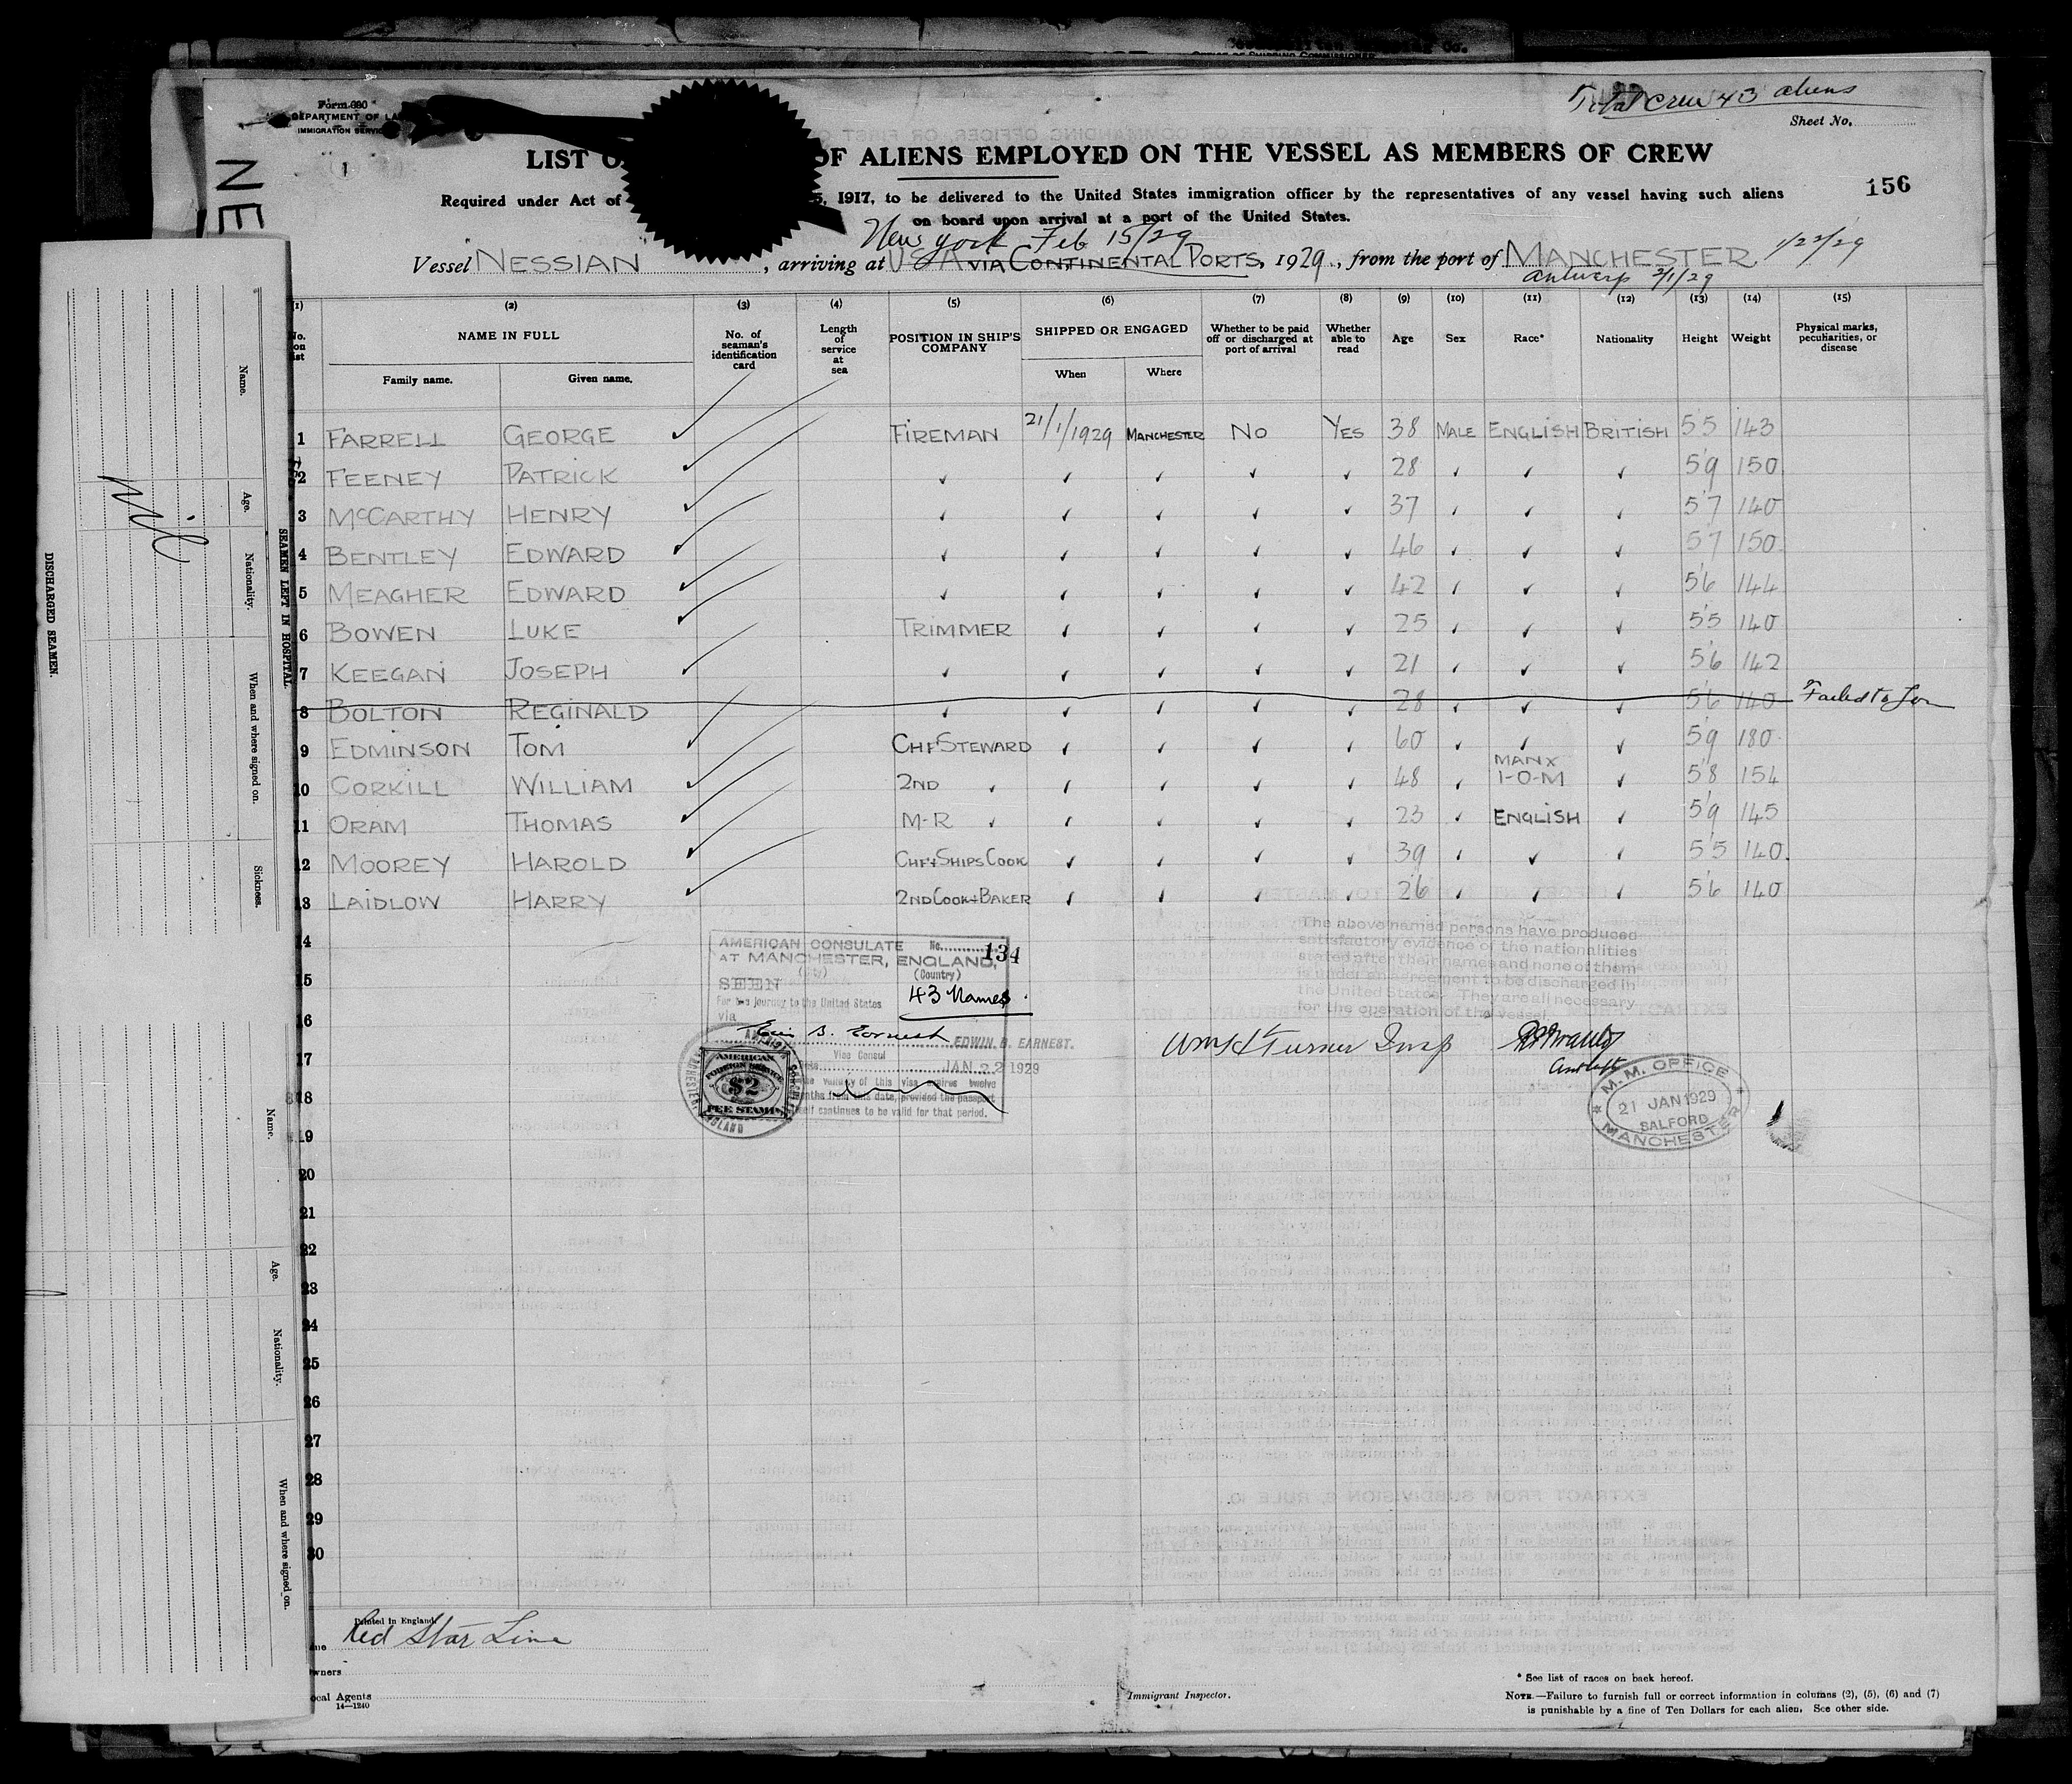 Total Crew 43 aliens
Form 690
DEPARTMENT OF LA
IMMIGRATION SERVIC
Sheet No.
1
LIST O OF ALIENS EMPLOYED ON THE VESSEL AS MEMBERS OF CREW
156
Required under Act of 5, 1917, to be delivered to the United States immigration officer by the representatives of any vessel having such aliens
on board upon arrival at a port of the United States.
New York Feb 15/29
Vessel NESSIAN, arriving at USA VIA CONTINENTAL PORTS, 1929, from the port of MANCHESTER 1/22/29
Antwerp 2/1/29
NE
(1) (2) (3) (4) (5) (6) (7) (8) (9) (10) (11) (12) (13) (14) (15)
No. on list NAME IN FULL No. of seaman's identification card Length of service at sea POSITION IN SHIP'S COMPANY SHIPPED OR ENGAGED Whether to be paid off or discharged at port of arrival Whether able to read Age Sex Race* Nationality Height Weight Physical marks, peculiarities, or disease
Family name. Given name. When Where
1 FARRELL GEORGE ✓ FIREMAN 21/1/1929 MANCHESTER NO YES 38 MALE ENGLISH BRITISH 5'5 143
2 FEENEY PATRICK ✓ ✓ ✓ ✓ ✓ ✓ 28 ✓ ✓ ✓ 5'9 150
3 McCARTHY HENRY ✓ ✓ ✓ ✓ ✓ ✓ 37 ✓ ✓ ✓ 5'7 140
4 BENTLEY EDWARD ✓ ✓ ✓ ✓ ✓ ✓ 46 ✓ ✓ ✓ 5'7 150
5 MEAGHER EDWARD ✓ ✓ ✓ ✓ ✓ ✓ 42 ✓ ✓ ✓ 5'6 144
6 BOWEN LUKE ✓ TRIMMER ✓ ✓ ✓ ✓ 25 ✓ ✓ ✓ 5'5 140
7 KEEGAN JOSEPH ✓ ✓ ✓ ✓ ✓ ✓ 21 ✓ ✓ ✓ 5'6 142
8 BOLTON REGINALD ✓ ✓ ✓ ✓ ✓ 28 ✓ ✓ ✓ 5'6 140 Failed to Join
9 EDMINSON TOM ✓ CHF STEWARD ✓ ✓ ✓ ✓ 60 ✓ ✓ ✓ 5'9 180
10 CORKILL WILLIAM ✓ 2ND ✓ ✓ ✓ ✓ ✓ 48 ✓ MANX I-O-M ✓ 5'8 154
11 ORAM THOMAS ✓ M-R ✓ ✓ ✓ ✓ ✓ 23 ✓ ENGLISH ✓ 5'9 145
12 MOOREY HAROLD ✓ CHF & SHIPS COOK ✓ ✓ ✓ ✓ 39 ✓ ✓ ✓ 5'5 140
13 LAIDLOW HARRY ✓ 2ND COOK & BAKER ✓ ✓ ✓ ✓ 26 ✓ ✓ ✓ 5'6 140
14
15
16
17
18
19
20
21
22
23
24
25
26
27
28
29
30
AMERICAN CONSULATE No. 134
AT MANCHESTER, ENGLAND,
(City) (Country)
SEEN
For the journey to the United States
43 Names
via
EDWIN B. EARNEST.
Vice Consul
JAN 22 1929
The validity of this visa expires twelve
months from this date, provided the passport
itself continues to be valid for that period.
AMERICAN
FOREIGN SERVICE
$2
FEE STAMP
The above named persons have produced
satisfactory evidence of the nationalities
stated after their names and none of them
is under an agreement to be discharged in
the United States. They are all necessary
for the operation of the vessel.
Wm H Turner Insp
M.M. OFFICE
21 JAN 1929
SALFORD
MANCHESTER
Printed in England.
Red Star Line
wners
ocal Agents
14—1240
Immigrant Inspector.
* See list of races on back hereof.
NOTE.—Failure to furnish full or correct information in columns (2), (5), (6) and (7)
is punishable by a fine of Ten Dollars for each alien. See other side.
DISCHARGED SEAMEN.
SEAMEN LEFT IN HOSPITAL
Nil
Name.
Age.
Nationality.
When and where signed on.
Sickness.
Name.
Age.
Nationality.
When and where signed on.